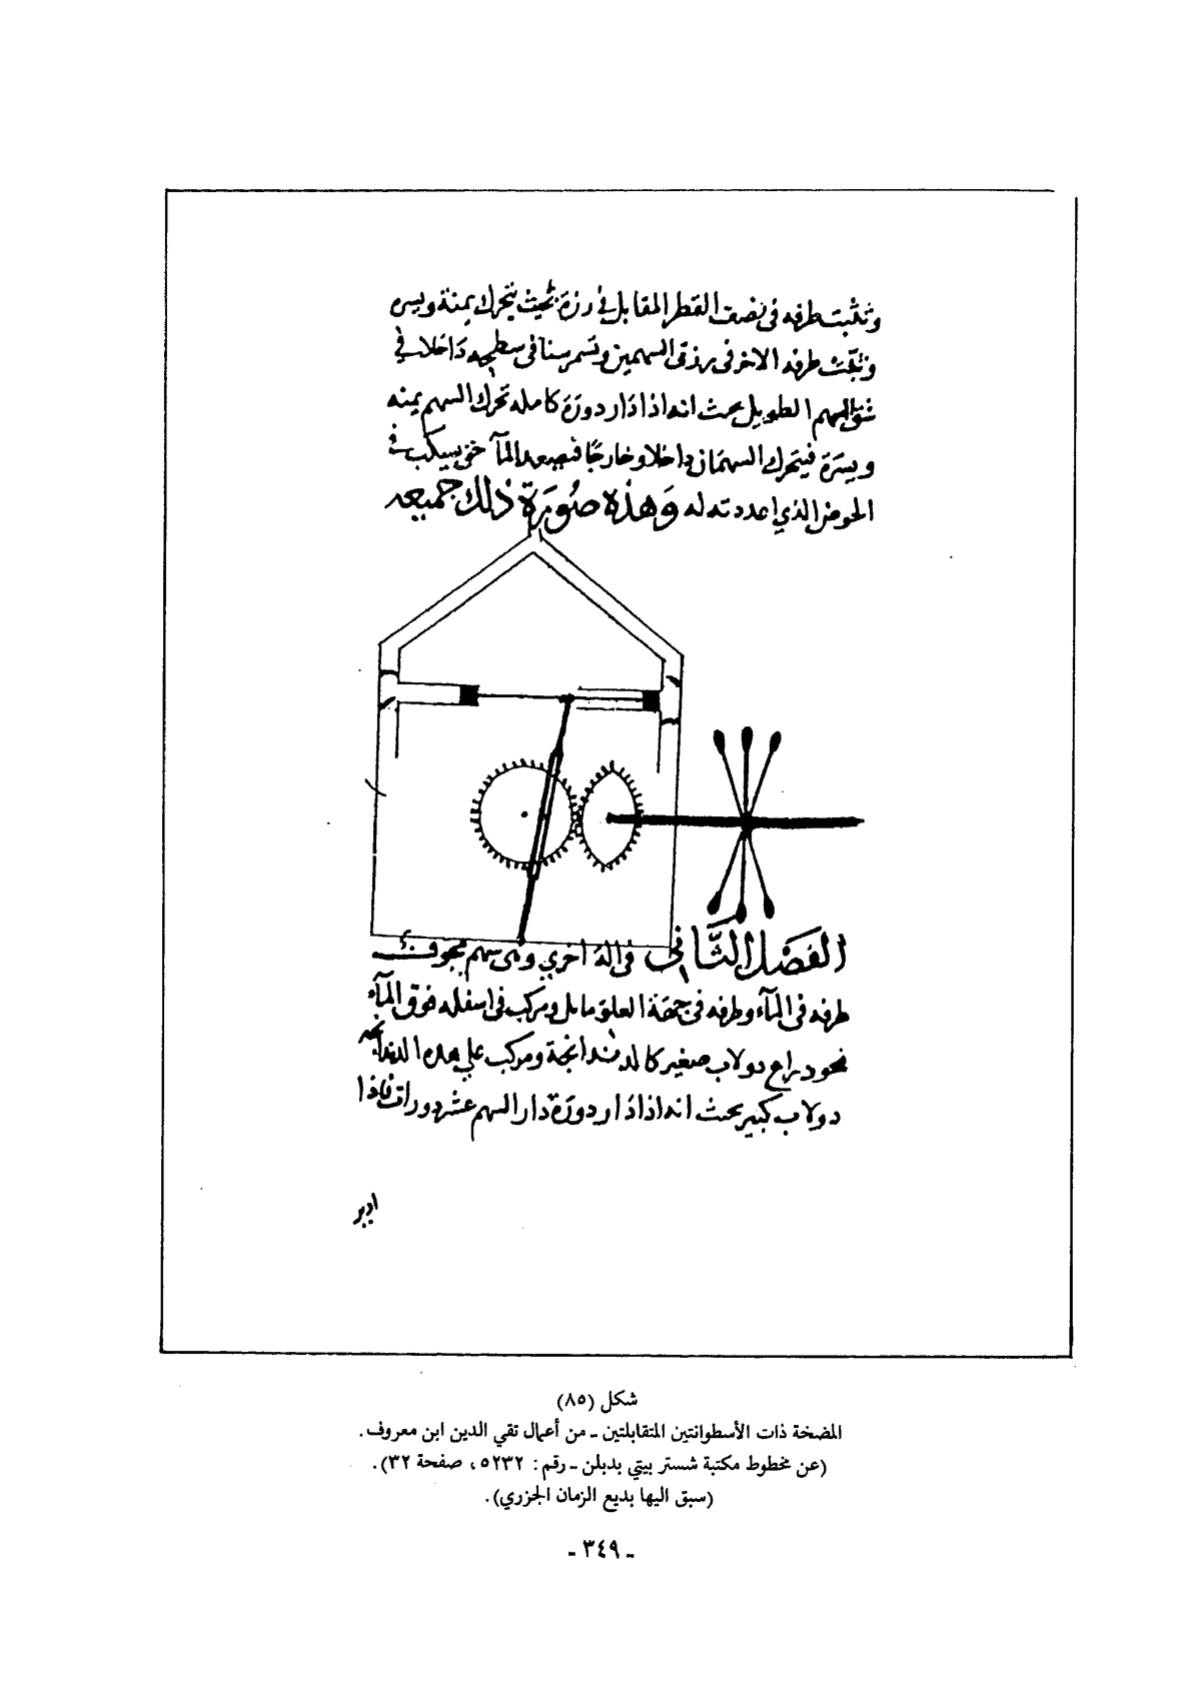 وتثبت طرفه فى نصف القطر المقابل فى رزة بحيث يتحرك يمنة ويسره
وتثبت طرفه الاخر فى السهمين وتسمر سنا فى سطحه داخلا فى
شق السهم الطويل بحيث انه اذا دار دورة كامله تحرك السهم يمنه
ويسرة فيتحرك السهمان داخلا وخارجا فيصعد المآ حتى يسكب فى
الحوض الذي اعددته له وهذه صورة ذلك جميعه
الفصل الثاني فى الة اخري وهى سهم مجوف
طرفه فى المآء وطرفه فى جهة العلو مايل ومركب فى اسفله فوق المآء
نحو ذراع دولاب صغير ومركب علي هذه
دولاب كبير بحيث انه اذا دار دورة دار السهم عشر دورات فاذا
ادير
شكل (٨٥)
المضخة ذات الأسطوانتين المتقابلتين ـ من أعمال تقي الدين ابن معروف.
(عن مخطوط مكتبة شستر بيتي بدبلن ـ رقم: ٥٢٣٢، صفحة ٣٢).
(سبق اليها بديع الزمان الجزري).
ـ ٣٤٩ ـ